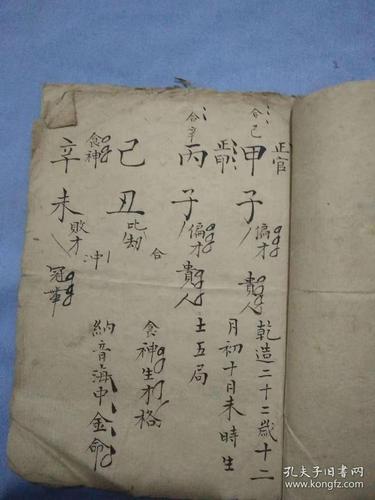 正官
合己
甲子
偏才
貴人
乾造二十二歲十二
月初十日未時生
正印
合辛
丙子
偏才
貴人
土五局
合
己丑
比劫
食神生才格
食神
辛未
敗才
冲
納音海中金命
孔夫子旧书网